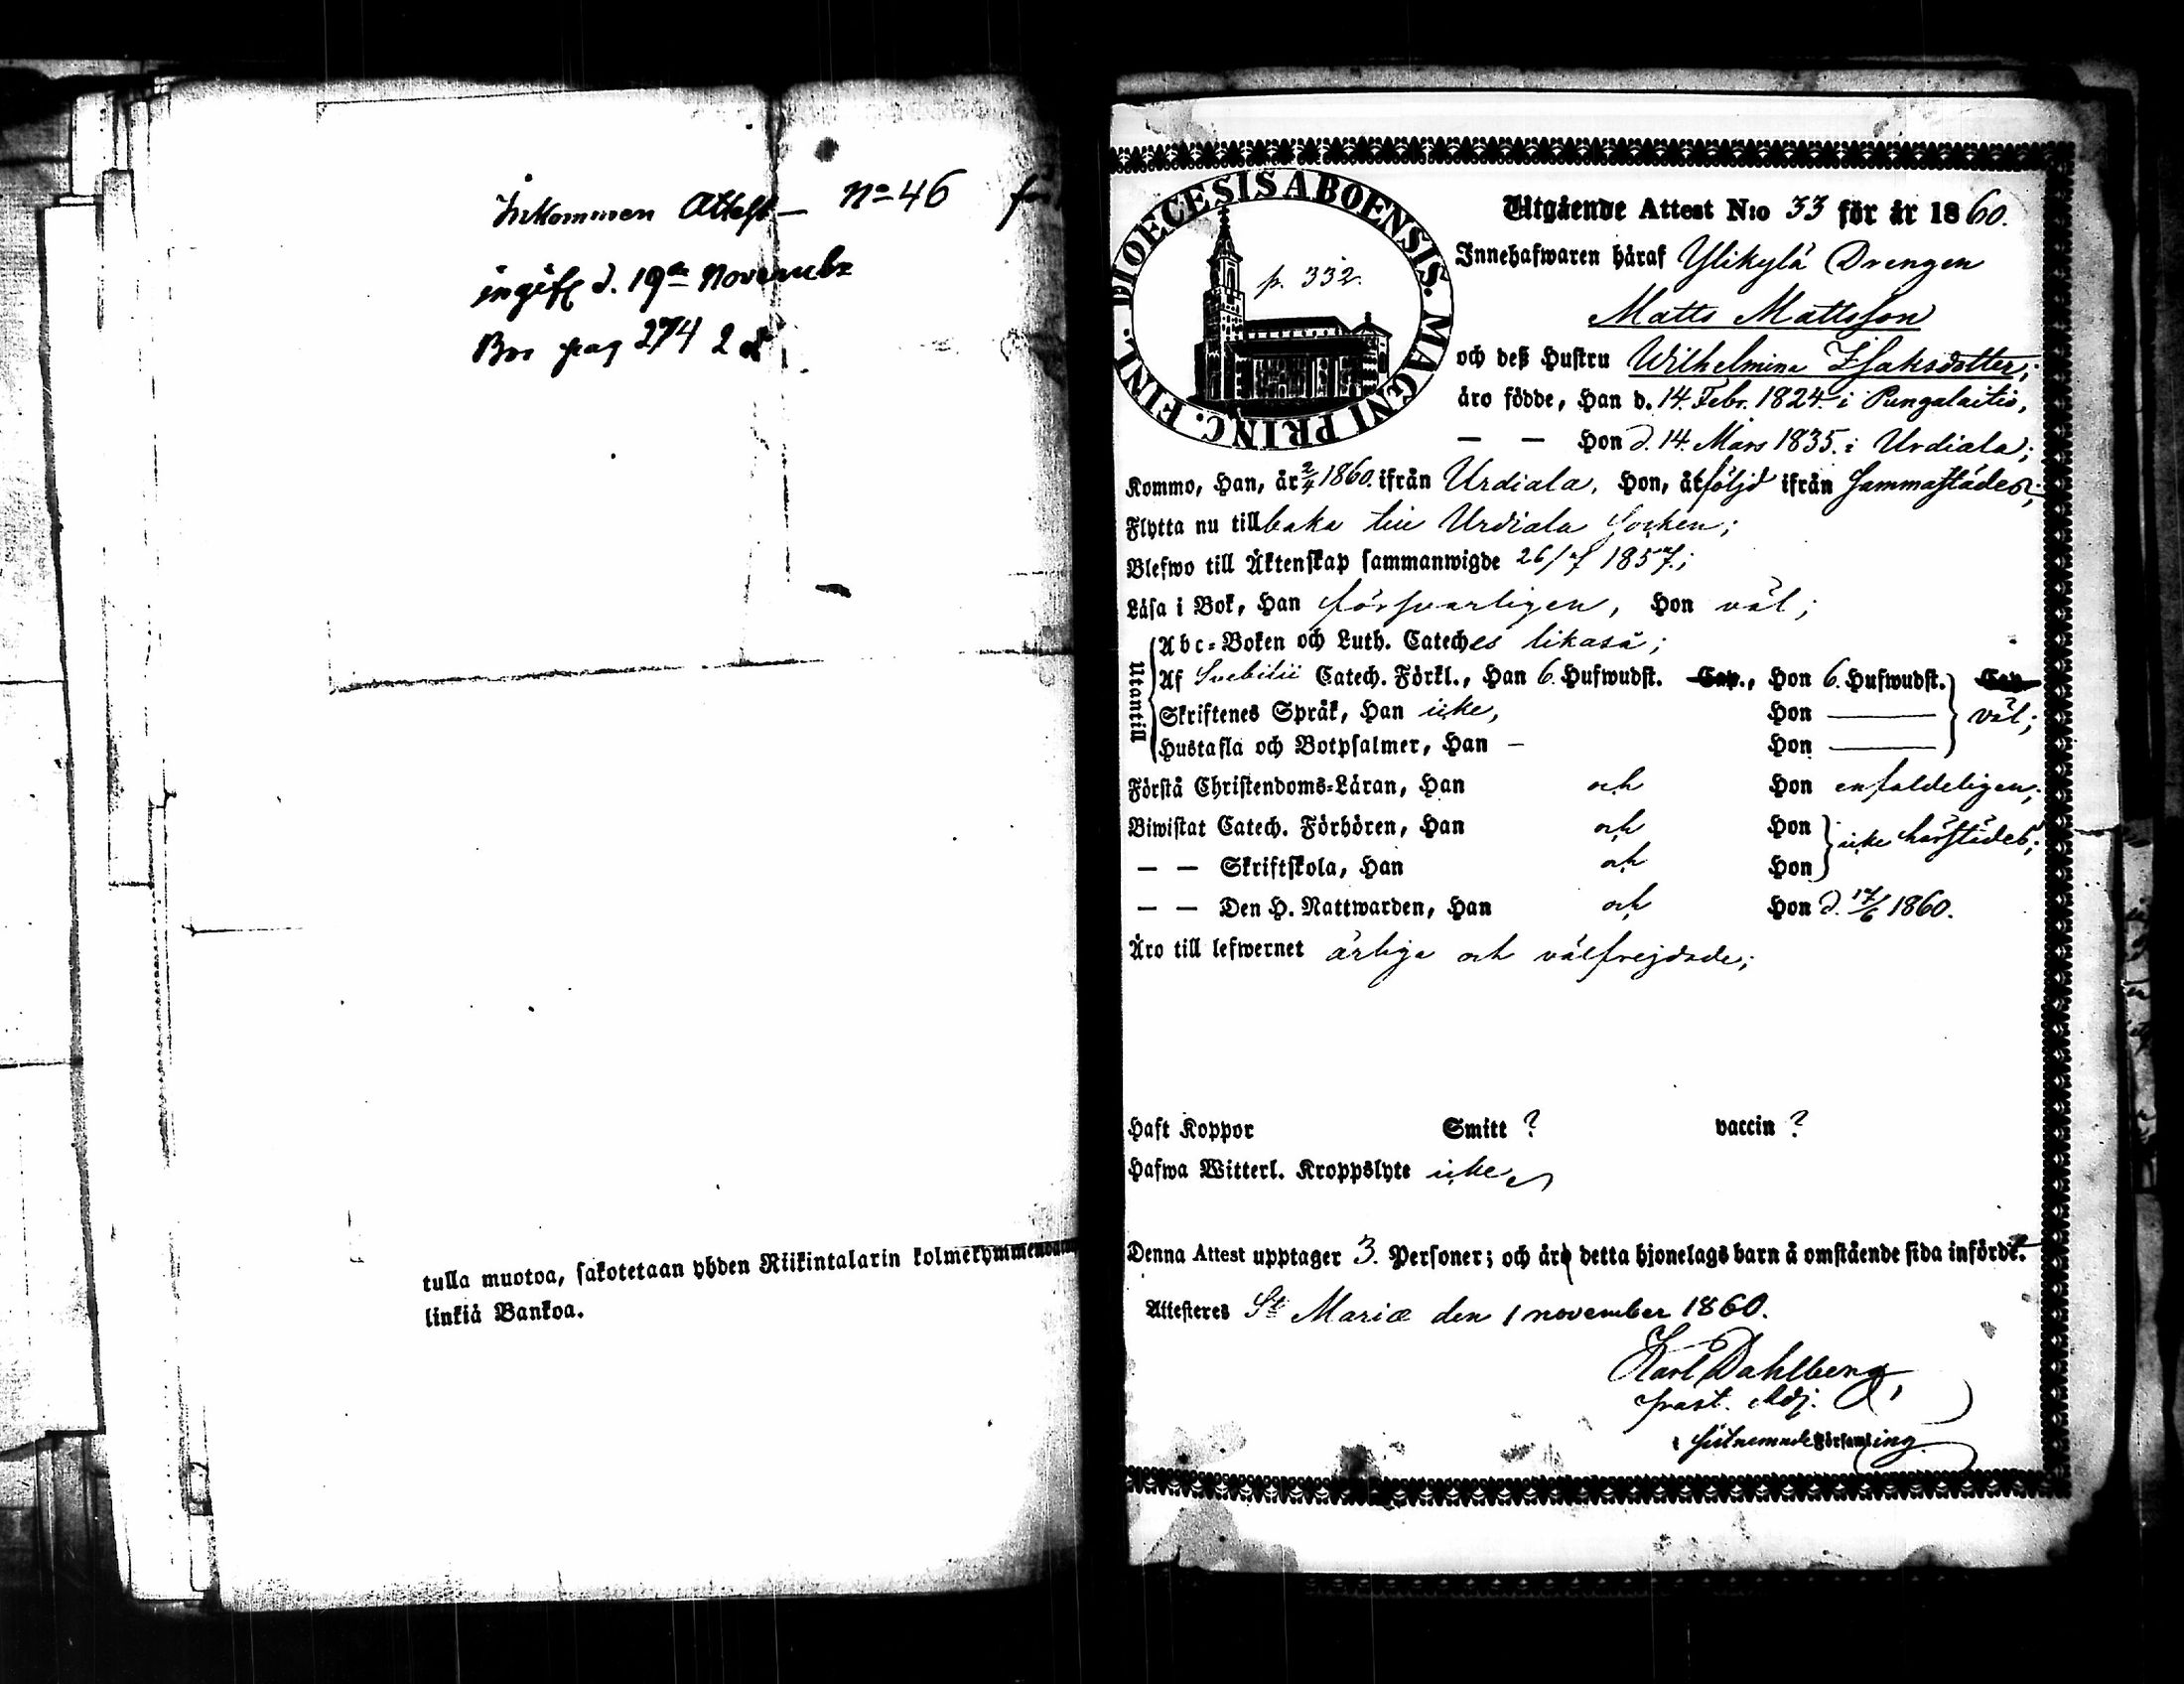 Inkommen Attest — No 46 för
ingifv d. 19de Novembr
Bor pag 274 2 d
tulla muotoa, sakotetaan yhden Riikintalarin kolmekymmendä
linkiä Bankoa.
DIOECESIS ABOENSIS. MAGNI PRINC. FINL.
p. 332.
Utgående Attest N:o 33 för år 1860.
Innehafwaren häraf Ylikylä Drengen
Matts Mattsson
och deß Hustru Wilhelmina Isaksdotter;
äro födde, Han d. 14. Febr. 1824. i Pungalaitio,
— — Hon d. 14. Mars 1835. i Urdiala;
Kommo, Han, år 2/4 1860. ifrån Urdiala, Hon, åtföljd ifrån sammastädes;
Flytta nu tillbaka till Urdiala Socken;
Blefwo till Äktenskap sammanwigde 26/7 1857.;
Läsa i Bok, Han försvarligen, Hon väl;
Utantill
Abc-Boken och Luth. Cateches likaså;
Af Svebilii Catech. Förkl., Han 6. Hufwudst. Cap., Hon 6. Hufwudst. Cap
Skriftenes Språk, Han icke, Hon —— väl;
Hustafla och Botpsalmer, Han – Hon ——
Förstå Christendoms-Läran, Han och Hon enfaldeligen;
Biwistat Catech. Förhören, Han och Hon icke härstädes;
— — Skriftskola, Han och Hon
— — Den H. Nattwarden, Han och Hon d. 17/6 1860.
Äro till lefwernet ärliga och välfrejdade;
Haft Koppor Smitt ? vaccin ?
Hafwa Witterl. Kroppslyte icke
Denna Attest upptager 3. Personer; och äro detta hjonelags barn å omstående sida införde.
Attesteres St Mariæ den 1 november 1860.
Karl Dahlberg,
prost. Adj.
i sistnemnde Församling